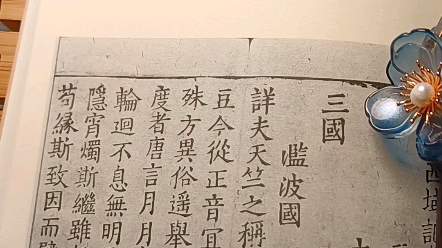 西域記
三國
濫波國
詳夫天竺之稱
豆今從正音宜
殊方異俗遥舉
度者唐言月月
輪迴不息無明
隱宵燭斯繼雖
苟緣斯致因而